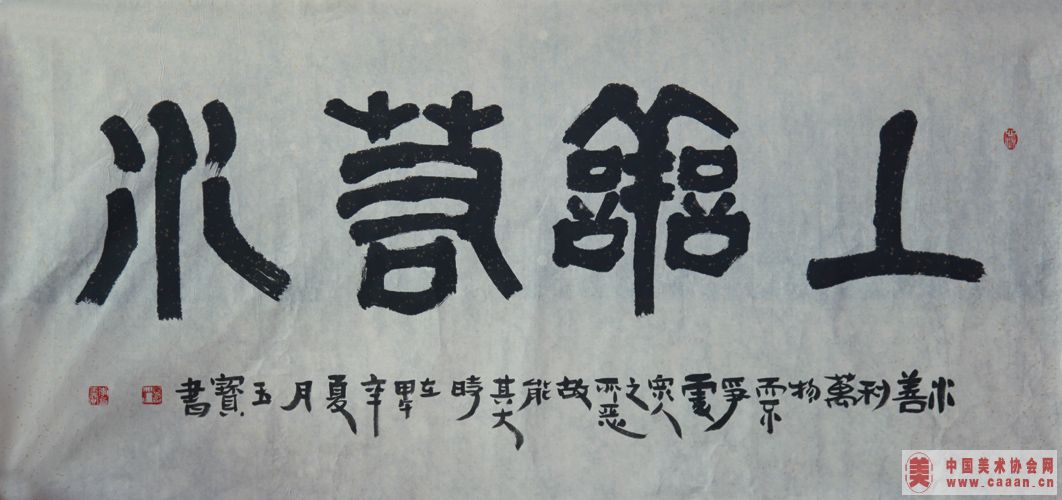 上善若水
水善利萬物而不爭處眾人之所惡故能其大時在甲午年夏月玉寶書
中国美术协会网
www.caaan.cn